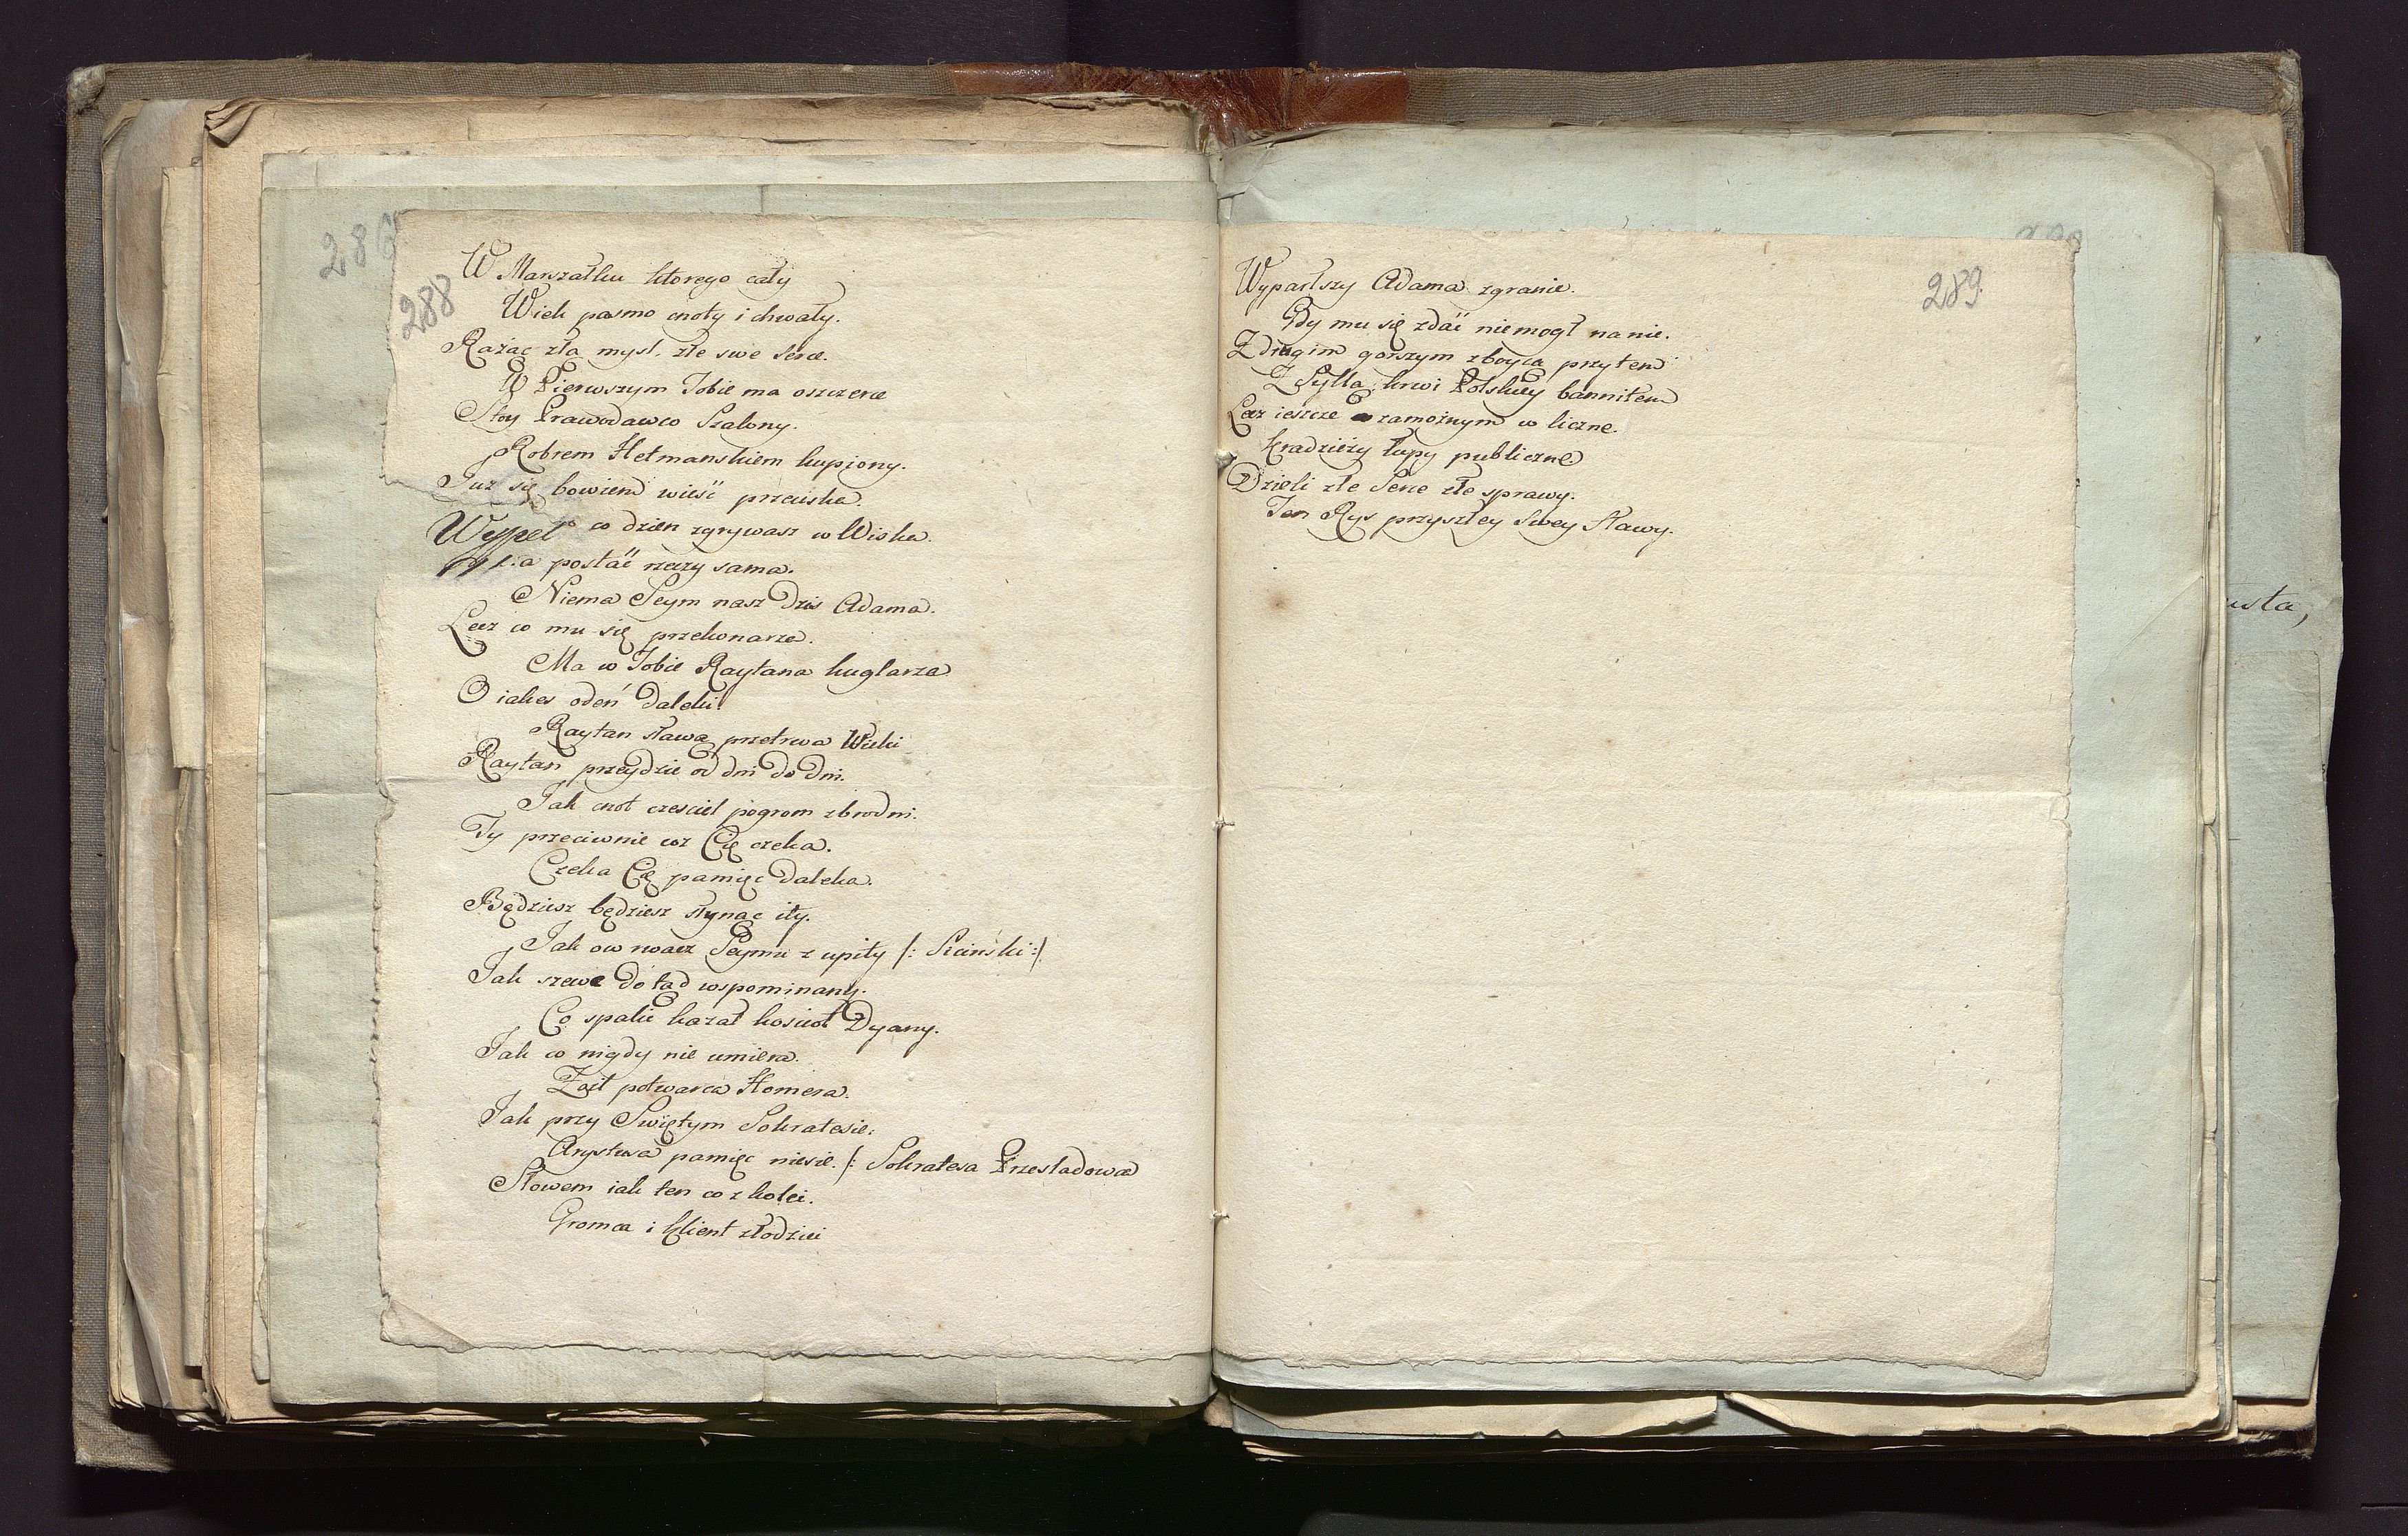 286
288
W Marszałku ktorego cały
Wiek pasmo cnoty i chwały.
Rażąc zła mysl. złe swe serce.
W Pierwszym Tobie ma oszczerce
Stoy Prawodawco Szalony.
Robrem Hetmanskiem kupiony.
Juz się bowiem wieść przeciska.
Wypel co dzien zgrywasz w Wiska.
postać rzeczy sama.
Niema Seym nasz dzis Adama.
Lecz co mu się przekonarza.
Ma w Tobie Raytana kuglarza
O iakes odeń daleki.
Raytan sławą przetrwa Wieki
Raytan przeydzie od dni do dni.
Jak cnot czciciel pogrom zbrodni.
Ty przeciwnie coz Cię czeka.
Czeka Cię pamięc daleka.
Będziesz będziesz słynąc ity.
Jak ow rwacz Seymu z upity /: Siciński :/
Jak szewc do tąd wspominany.
Co spalić kazał kościoł Dyany.
Jak co nigdy nie umiera.
Zoil potwarca Homera.
Jak przy Swiętym Sokratesie.
pamięc niesie. /: Sokratesa Przesladowca
Słowem iak ten co z kolei.
Gromca i klient złodziei
289
Wyparłszy Adama zgranie.
Gdy mu się zdać niemogł na nie.
Z drugim gorszym zboycą przytem
Z Syllą krwi Polskiey bannitem
Lecz ieszcze zamożnym w liczne.
kradzieży łupy publiczne
Dzieli złe Serce złe sprawy.
Ten Rys przyszłey Swey Sławy.
usta,